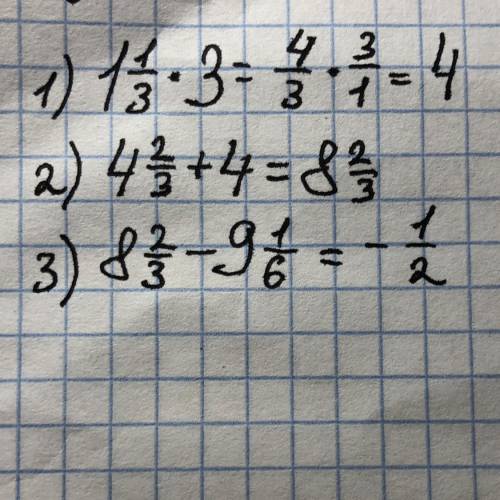 1) 1 1/3 · 3 = 4/3 · 3/1 = 4
2) 4 2/3 + 4 = 8 2/3
3) 8 2/3 - 9 1/6 = - 1/2